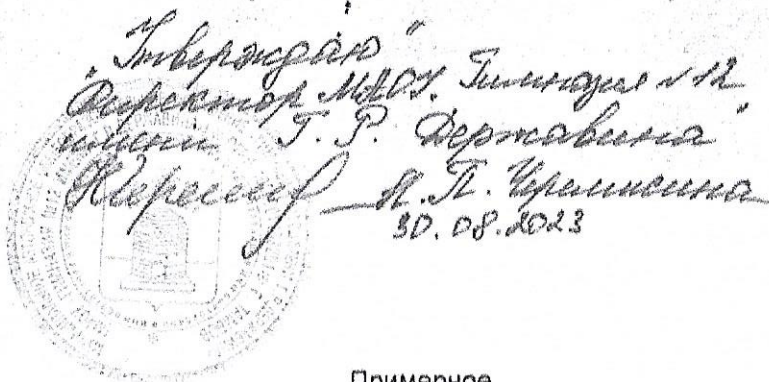 "Утверждаю"
Директор МАОУ "Гимназия №12
имени Г. Р. Державина"
Н. П. Черемисина
30.08.2023
Примерное